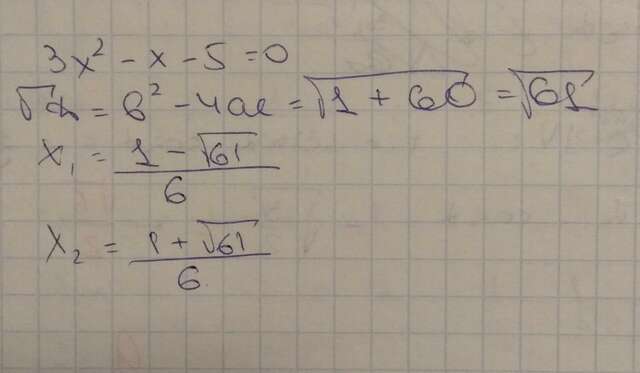 3x² - x - 5 = 0
√D = b² - 4ac = √1 + 60 = √61
x₁ = (1 - √61)/6
x₂ = (1 + √61)/6